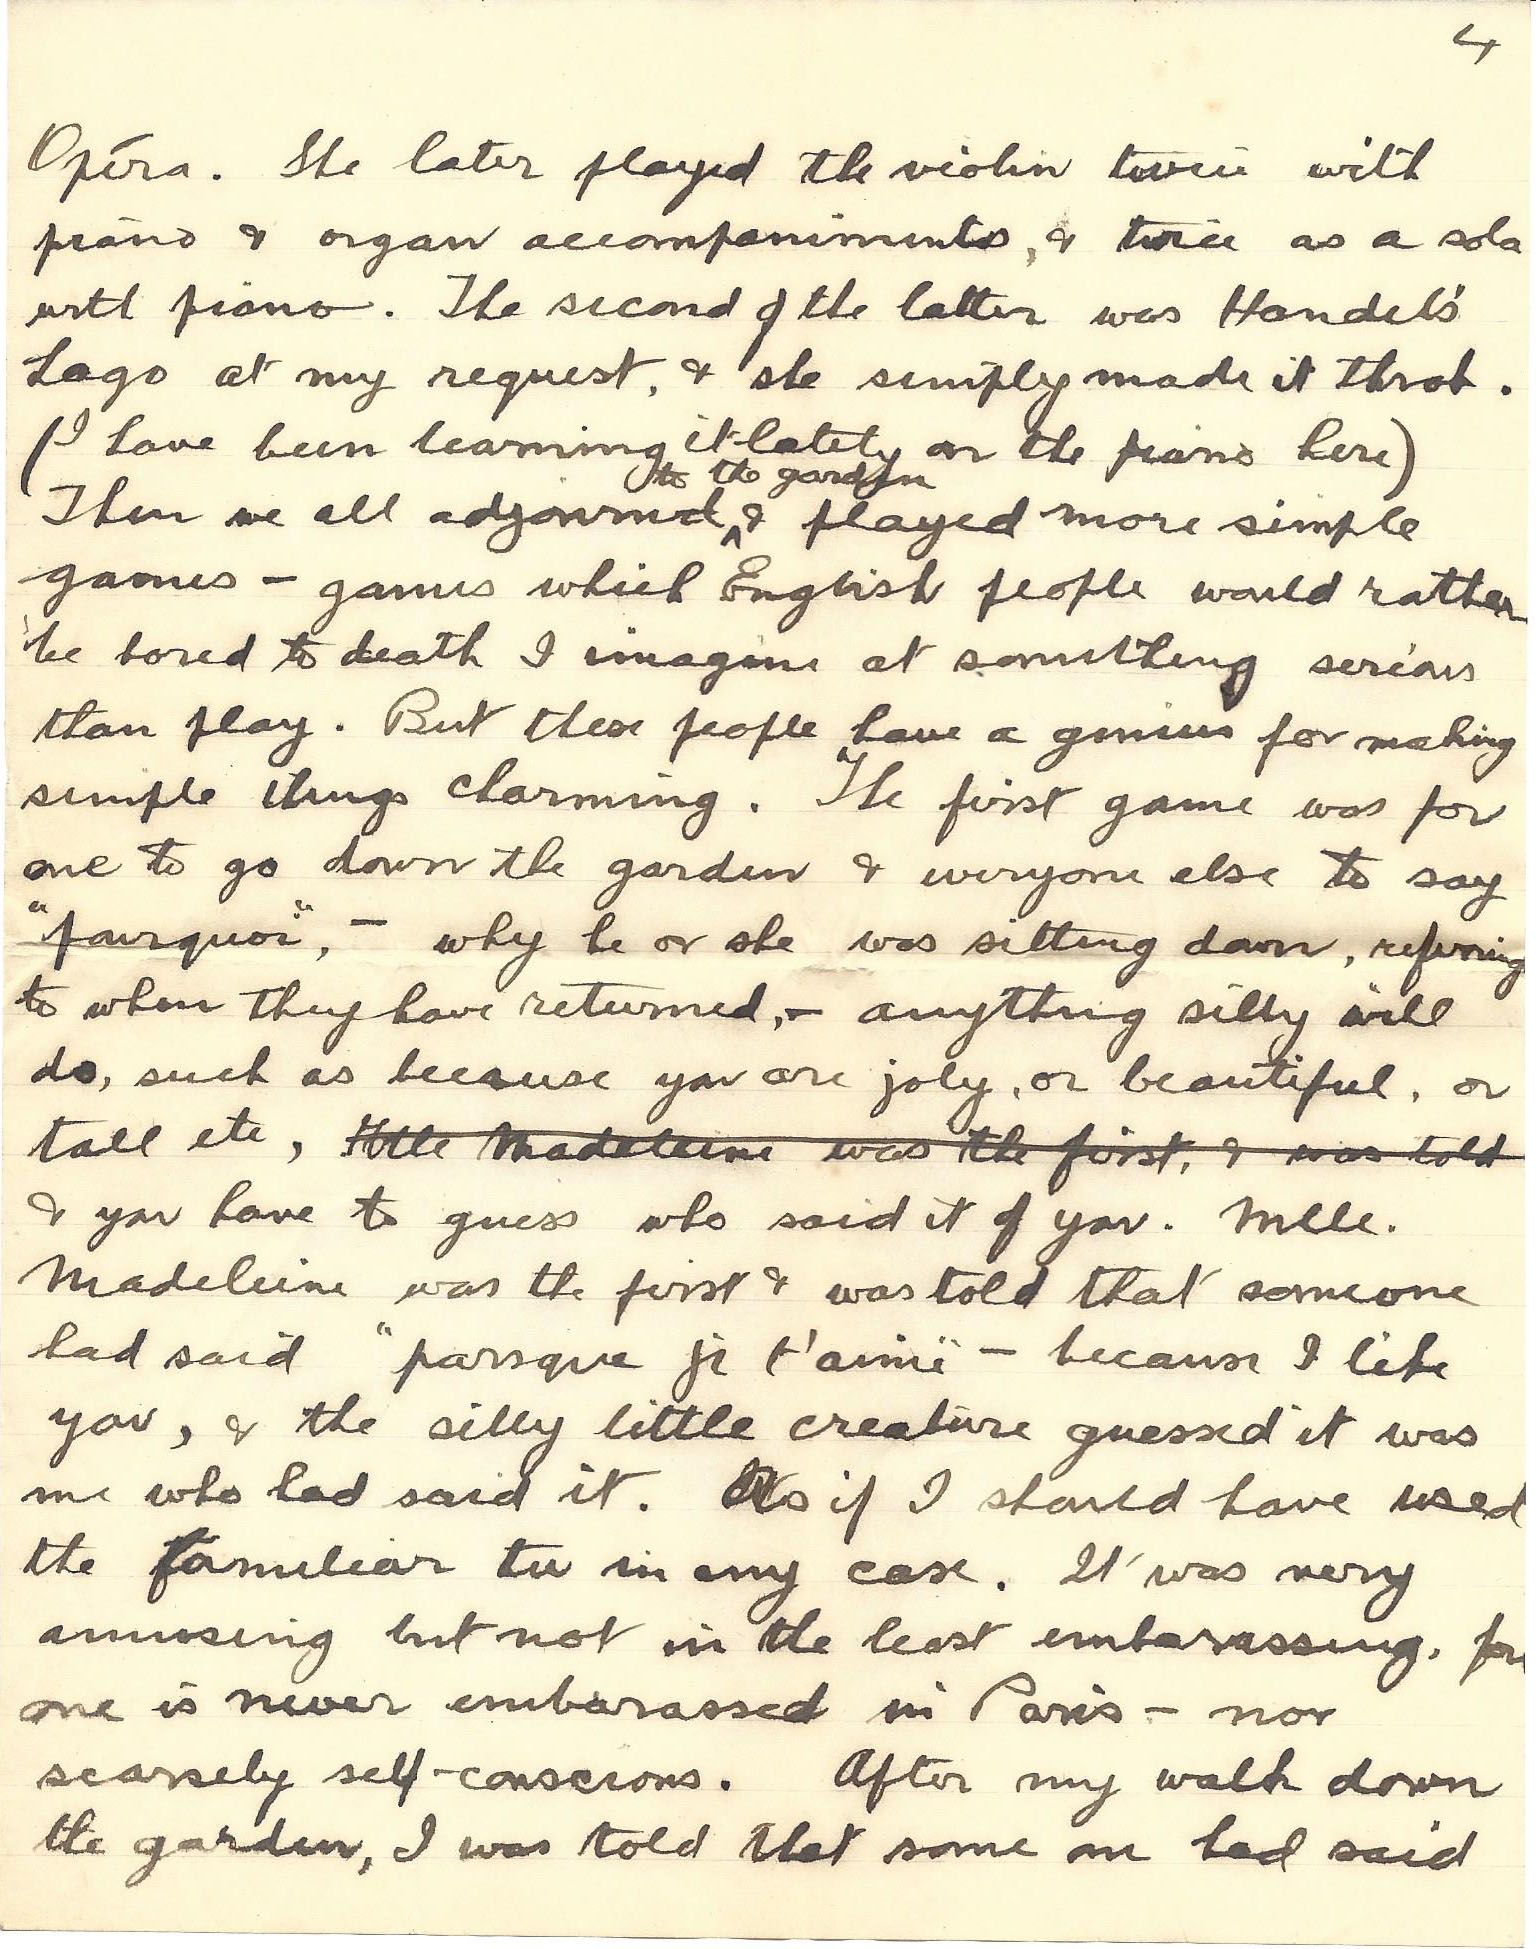 4
Opéra. She later played the violin twice with
piano & organ accompaniments, & twice as a solo
with piano. The second of the latter was Handel's
Lago at my request, & she simply made it throb.
(I have been learning it lately on the piano here)
to the garden
Then we all adjourned ^ & played more simple
games – games which English people would rather
be bored to death I imagine at something serious
than play. But these people have a genius for making
simple things charming. The first game was for
one to go down the garden & everyone else to say
"pourquoi", – why he or she was sitting down, referring
to when they have returned, – anything silly will
do, such as because you are joly, or beautiful, or
tall etc, Mlle Madeleine was the first, & was told
& you have to guess who said it of you. Mlle.
Madeleine was the first & was told that someone
had said "parsque je t'aime – because I like
you, & the silly little creature guessed it was
me who had said it. As if I should have used
the familiar tu in any case. It was very
amusing but not in the least embarassing, for
one is never embarassed in Paris – nor
scarsely self-conscious. After my walk down
the garden, I was told that some one had said